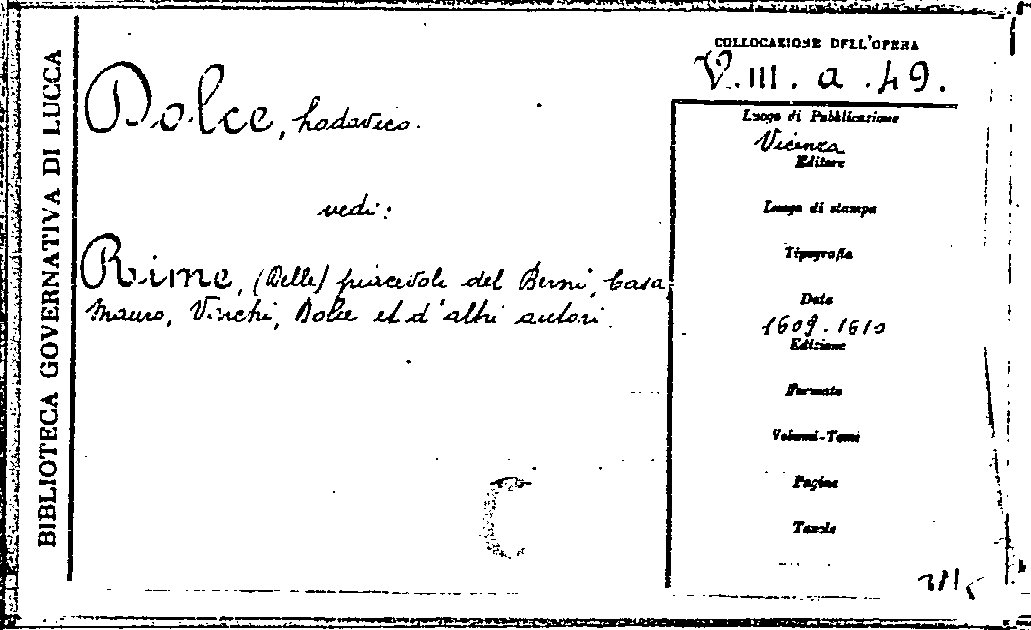 BIBLIOTECA GOVERNATIVA DI LUCCA
Dolce, Lodovico.
vedi:
Rime, (Delle) piacevole del Berni, Casa,
Mauro, Virchi, Dolce et d'altri autori.
COLLOCAZIONE DELL'OPERA
V. III. a. 49.
Luogo di Pubblicazione
Vicenza
Editore
Luogo di stampa
Tipografia
Data
1609.1610
Edizione
Formato
Volumi-Tomi
Pagine
Tavole